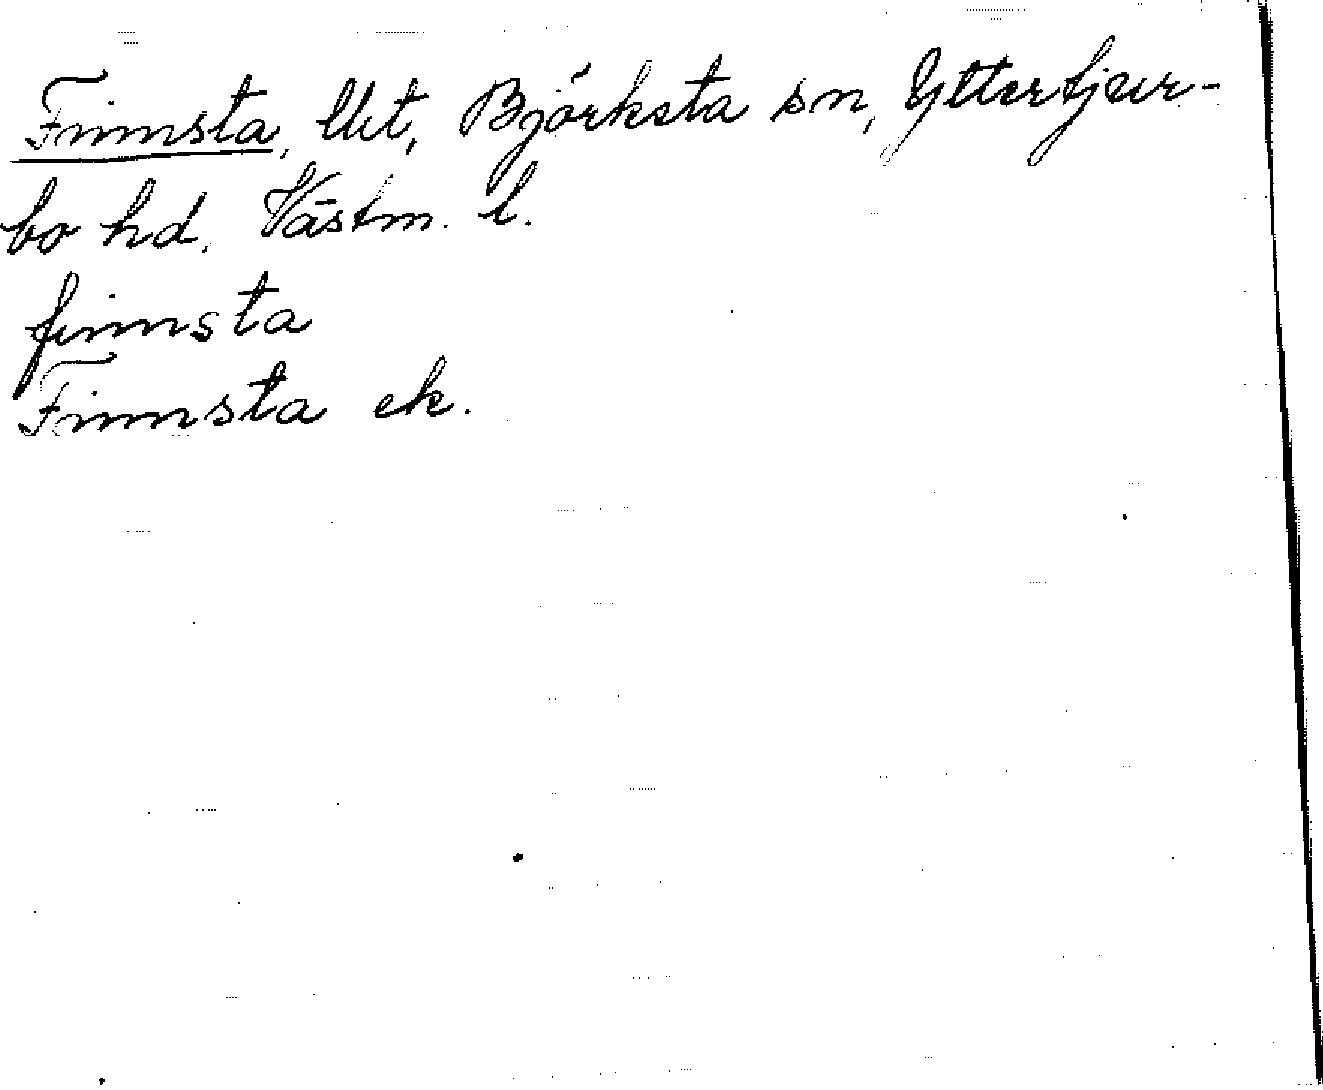 Finnsta, Ukt, Björksta sn, Yttertjur-
bo hd. Västm. l.
finnsta
Finnsta ek.